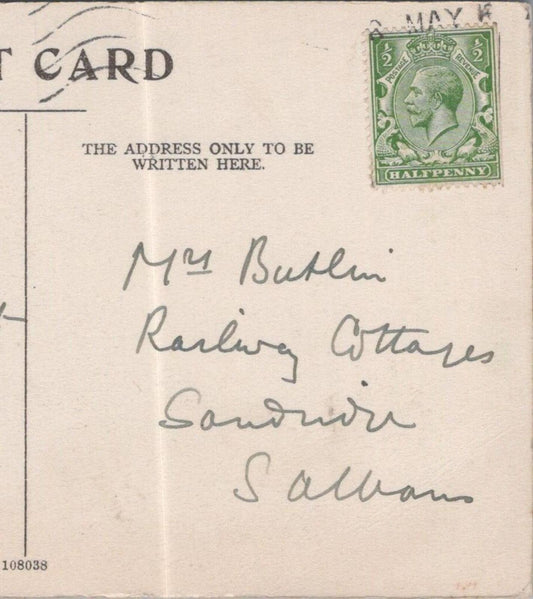 MAY
T CARD
½ ½
POSTAGE REVENUE
HALFPENNY
THE ADDRESS ONLY TO BE
WRITTEN HERE.
Mrs Butlin
Railway Cottages
Sandridge
S Albans
108038